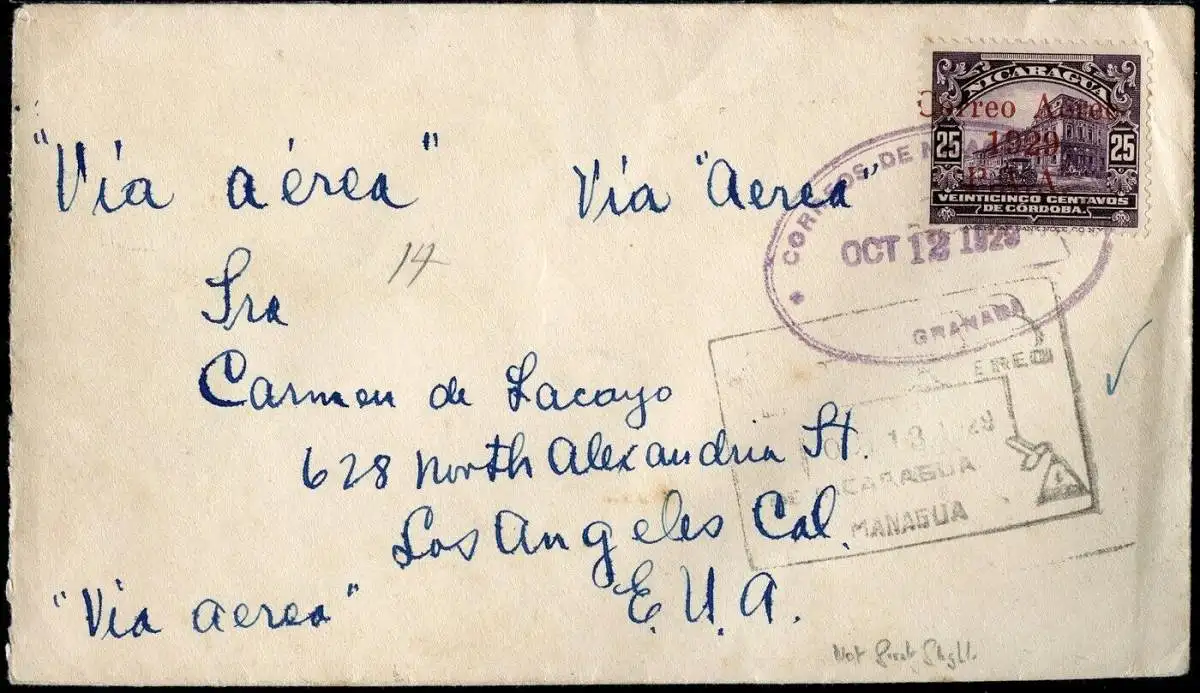 NICARAGUA
Correo Aereo
1929
P.A.A
25 25
VEINTICINCO CENTAVOS
DE CÓRDOBA
"Vía aérea" Vía "Aerea"
CORREOS DE
OCT 12 1929
GRANADA
14
Sra
Carmen de Lacayo
628 North Alexandria St.
Los Angeles Cal.
E. U. A.
"Via aerea"
MANAGUA
Not